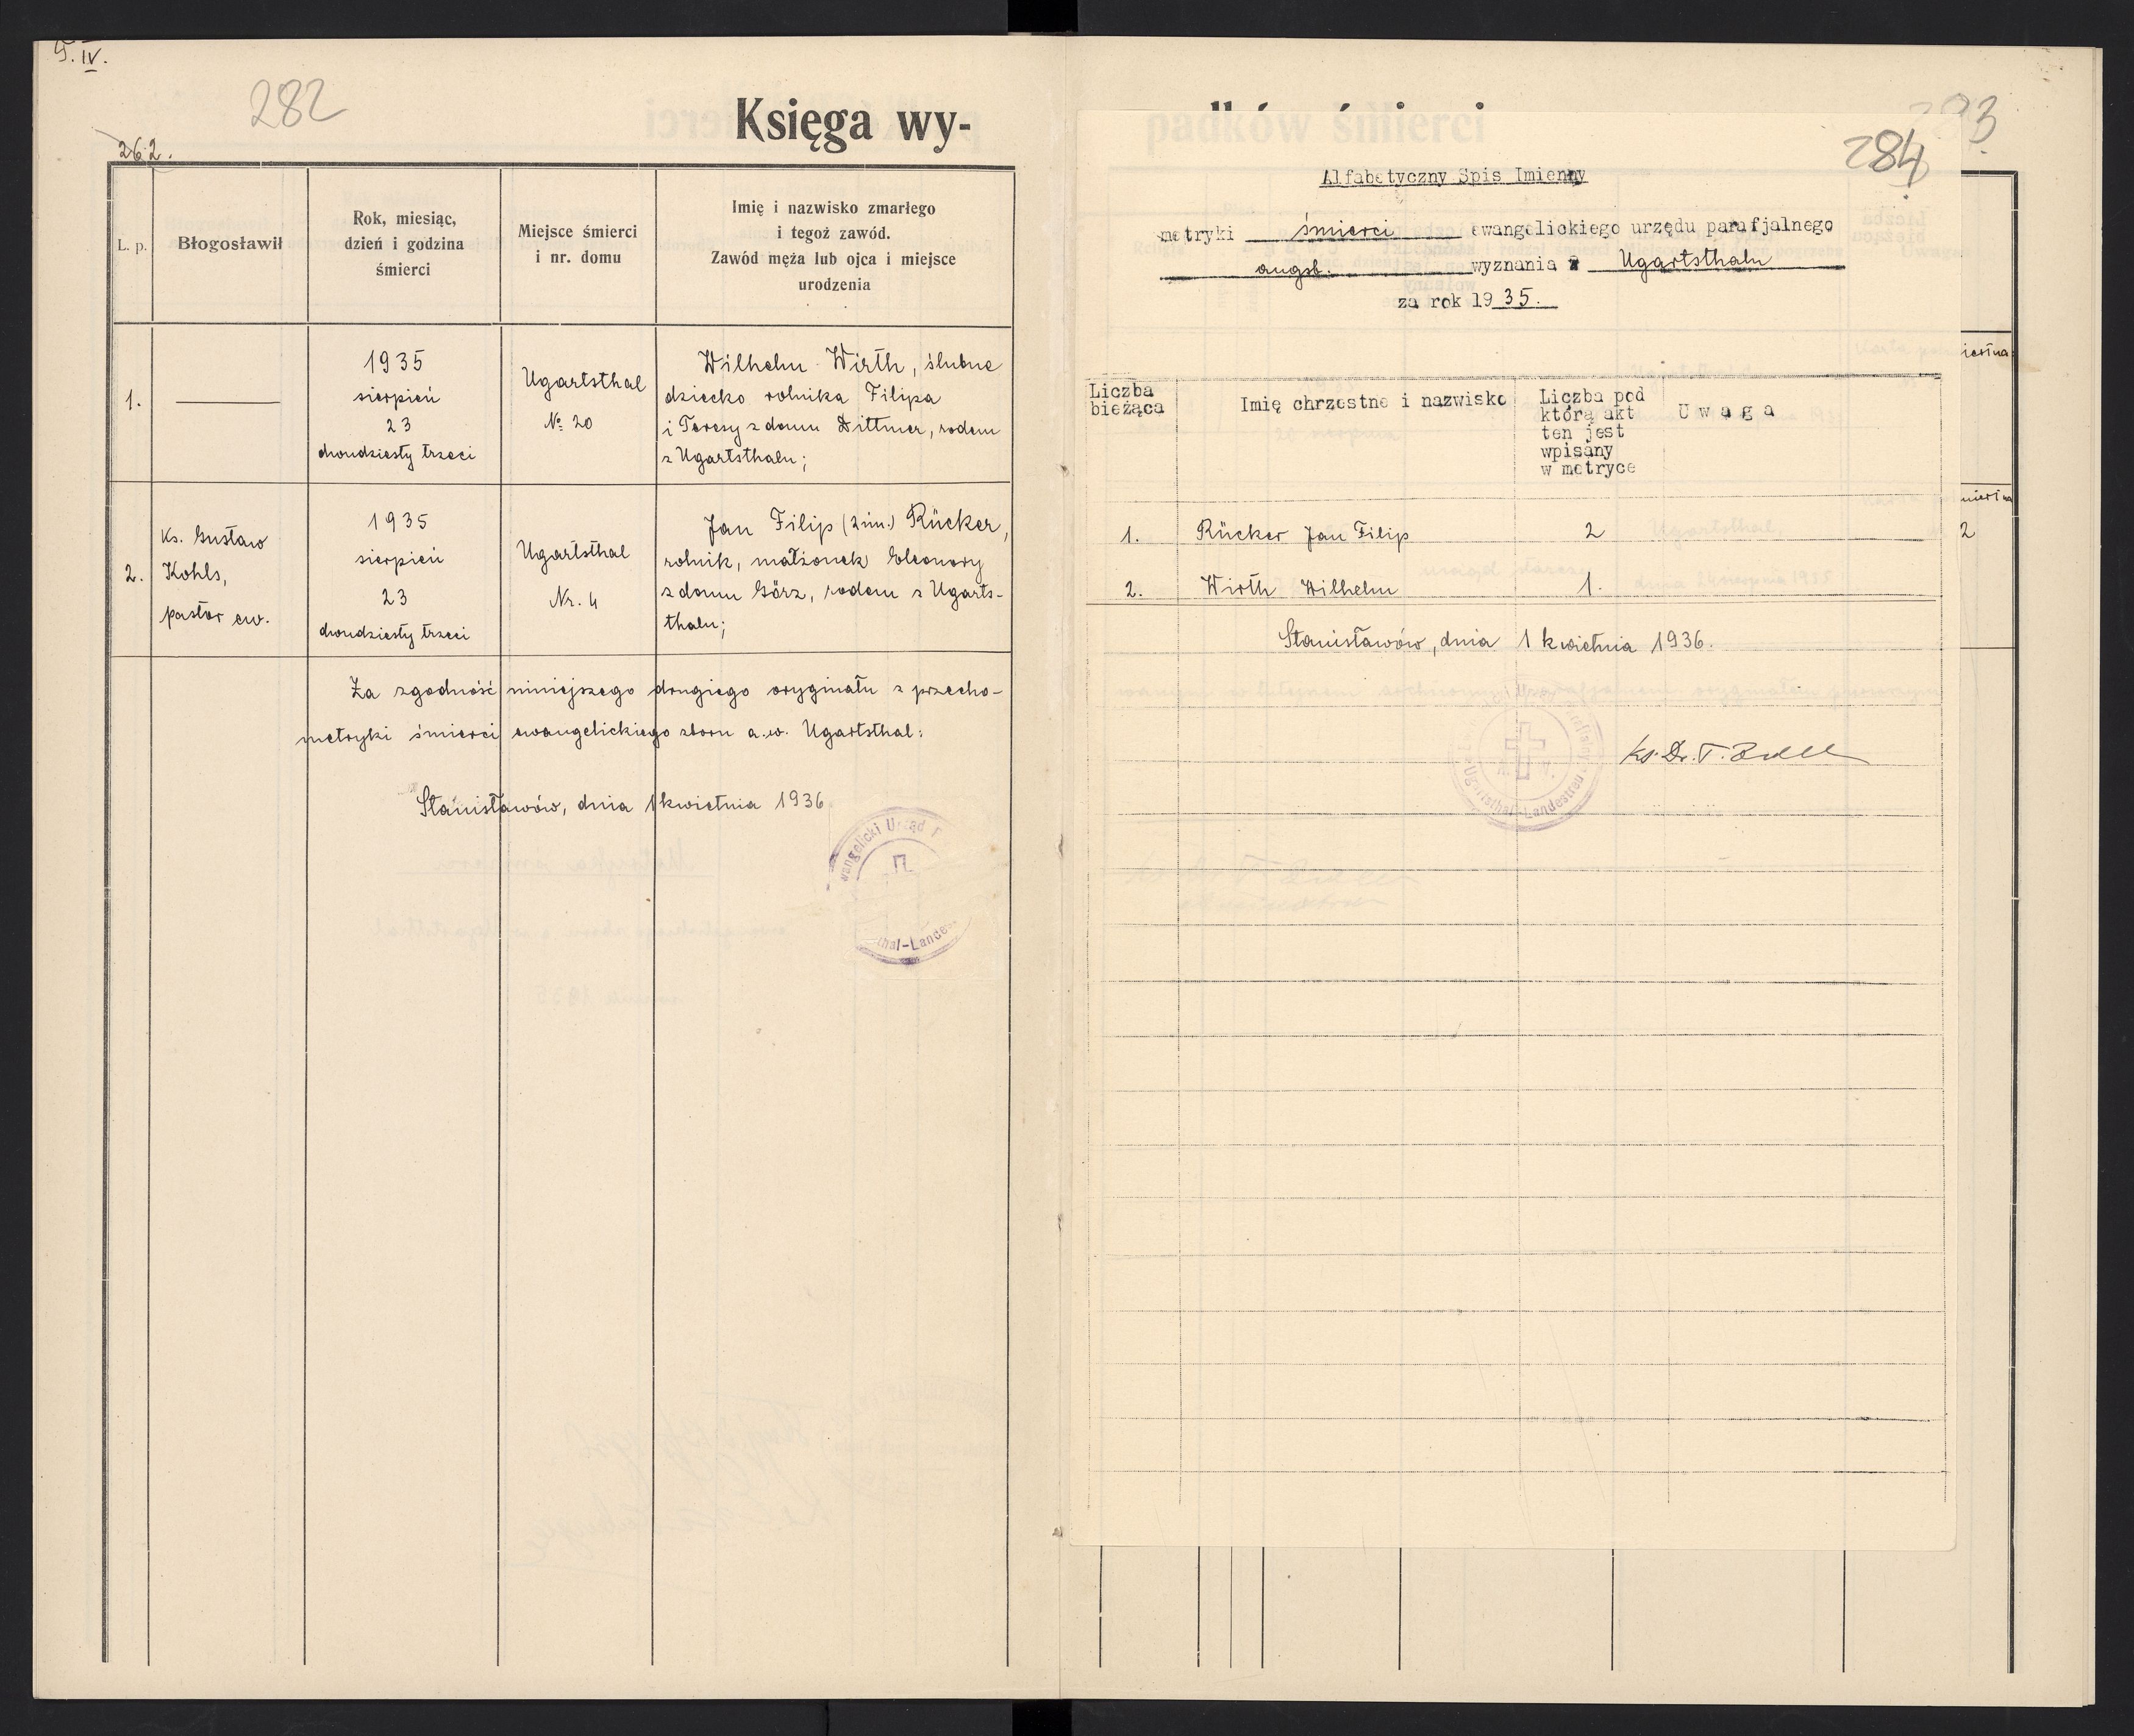 T. IV.
282
262.
Księga wy-
L. p.
Błogosławił
Rok, miesiąc,
dzień i godzina
śmierci
Miejsce śmierci
i nr. domu
Imię i nazwisko zmarłego
i tegoż zawód.
Zawód męża lub ojca i miejsce
urodzenia
1.
1935
sierpień
23
dwudziesty trzeci
Ugartsthal
No 20
Wilhelm Wirth, ślubne
dziecko rolnika Filipa
i Teresy z domu Dittmer, rodem
z Ugartsthalu;
2.
Ks. Gustaw
Kohls,
pastor ew.
1935
sierpień
23
dwudziesty trzeci
Ugartsthal
Nr. 4
Jan Filip (2 im.) Rücker,
rolnik, małżonek Eleonory
z domu Görz, rodem z Ugarts-
thalu;
Za zgodność niniejszego drugiego oryginału z przecho-
metryki śmierci ewangelickiego zboru a.w. Ugartsthal:
Stanisławów, dnia 1 kwietnia 1936
wangelicki Urząd
thal-Landes
padków śmierci
283
284
Alfabetyczny Spis Imienny
metryki śmierci ewangelickiego urzędu parafjalnego
augsb. wyznania Ugartsthalu
za rok 1935.
Liczba
bieżąca
Imię chrzestne i nazwisko
Liczba pod
którą akt
ten jest
wpisany
w metryce
Uwaga
1. Rücker Jan Filip 2
2. Wirth Wilhelm 1.
2
Stanisławów, dnia 1 kwietnia 1936.
Ugartsthal-Landestreu
Ks. Dr. T.